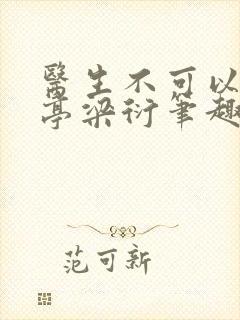 醫生不可以
亭梁衍筆趣
范可新